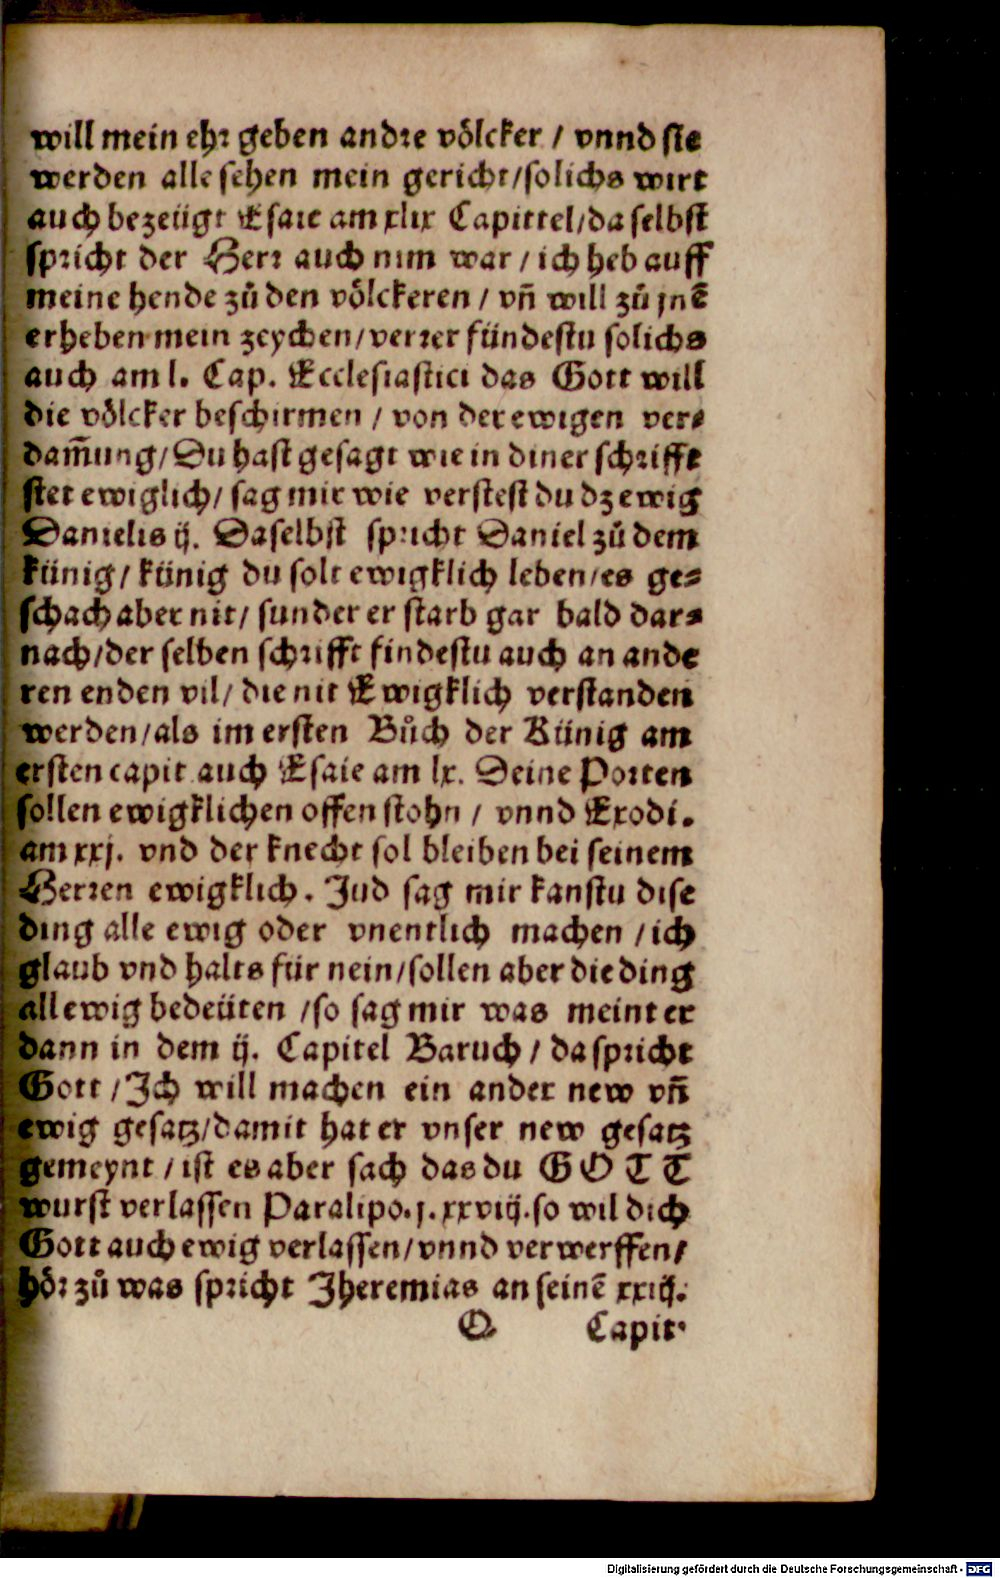 will mein ehr geben andre völcker / vnnd sie
werden alle sehen mein gericht/solichs wirt
auch bezeügt Esaie am xlix Capittel/da selbst
spricht der Herr auch nim war / ich heb auff
meine hende zů den völckeren / vñ will zů jnē
erheben mein zeychen/verrer fündestu solichs
auch am l. Cap. Ecclesiastici das Gott will
die völcker beschirmen / von der ewigen ver⸗
dam̄ung/Du hast gesagt wie in diner schrifft
stet ewiglich/ sag mir wie verstest du dz ewig
Danielis ij. Daselbst spricht Daniel zů dem
künig/ künig du solt ewigklich leben/es ge⸗
schach aber nit/ sunder er starb gar bald dar⸗
nach/der selben schrifft findestu auch an ande
ren enden vil/ die nit Ewigklich verstanden
werden/als im ersten Bůch der Künig am
ersten capit auch Esaie am lx. Deine Porten
sollen ewigklichen offen stohn / vnnd Exodi.
am xxj. vnd der knecht sol bleiben bei seinem
Herren ewigklich. Jud sag mir kanstu dise
ding alle ewig oder vnentlich machen / ich
glaub vnd halts für nein/sollen aber die ding
all ewig bedeüten /so sag mir was meint er
dann in dem ij. Capitel Baruch / da spricht
Gott / Ich will machen ein ander new vñ
ewig gesatz/damit hat er vnser new gesatz
gemeynt / ist es aber sach das du GOTT
wurst verlassen Paralipo. j. xxviij. so wil dich
Gott auch ewig verlassen/vnnd verwerffen/
hör zů was spricht Jheremias an seinē xxiij.
O Capit.
Digitalisierung gefördert durch die Deutsche Forschungsgemeinschaft - DFG